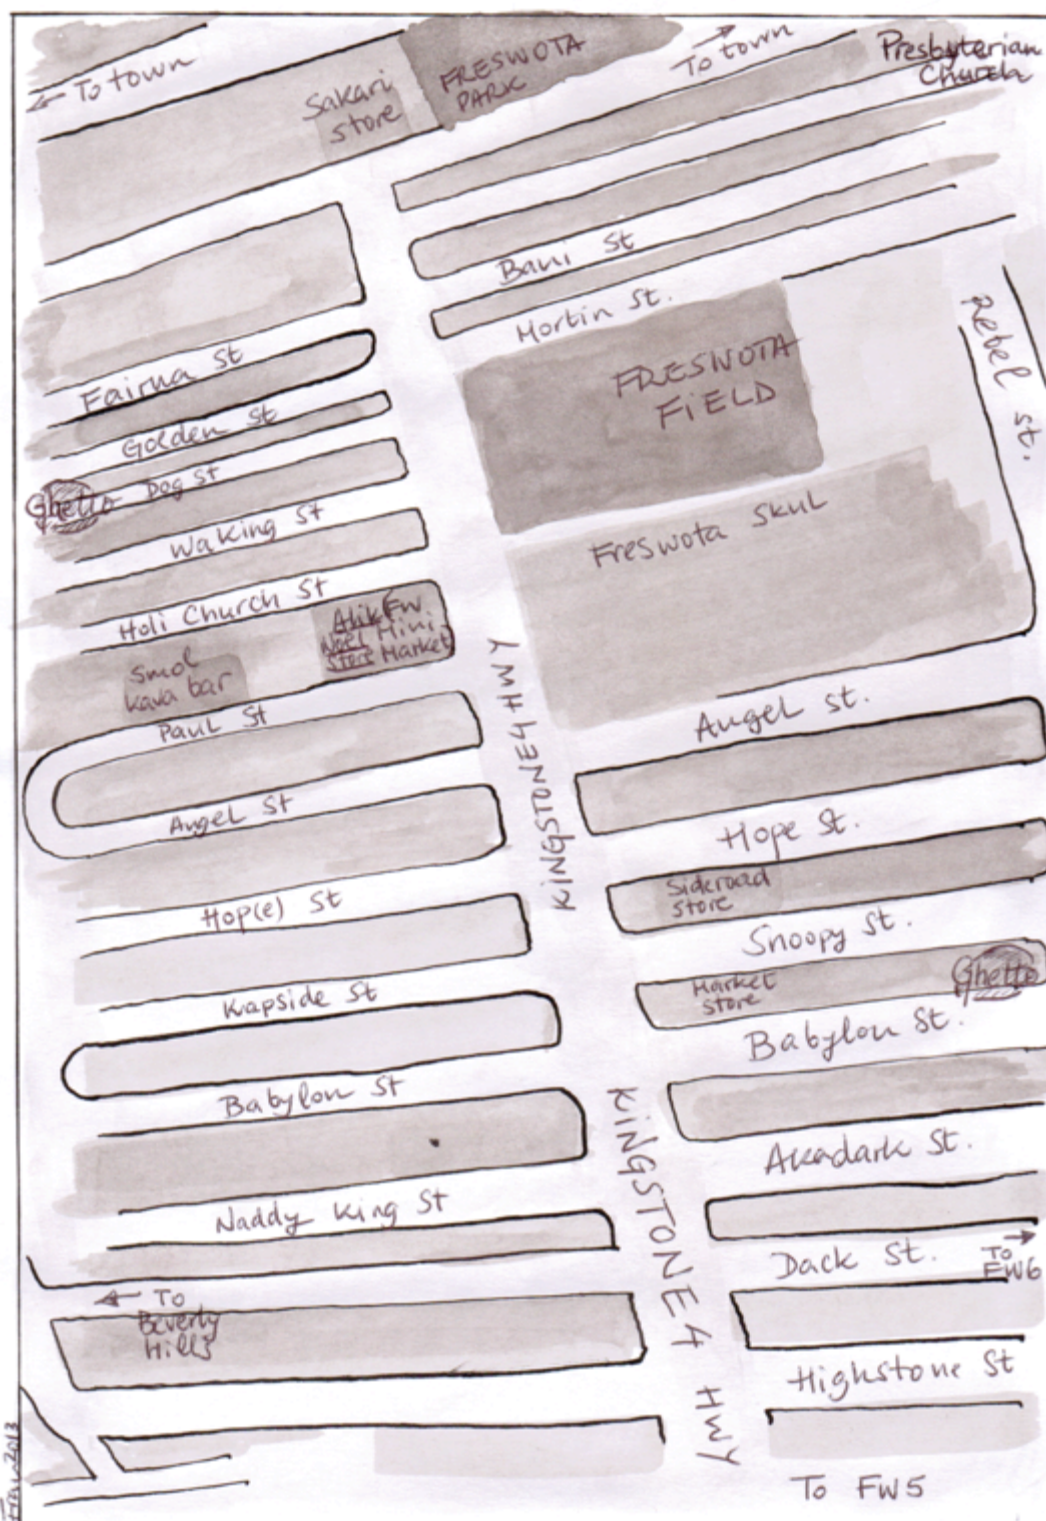 ← To town
Sakari
store
FRESWOTA
PARK
To town
Presbyterian
Church
Bani St
Mortin St.
FRESWOTA
FIELD
Rebel St.
Fairua St
Golden St
Ghetto
Dog St
Waking St
Holi Church St
Freswota SKUL
Noel
Store
FW.
Mini
Market
Smol
Kava bar
Paul St
KINGSTONE4 HWY
Angel St.
Angel St
Hope St.
Hop(e) St
Sideroad
store
Snoopy St.
Market
store
Ghetto
Kapside St
Babylon St.
Babylon St
KINGSTONE4 HWY
Akadark St.
Naddy King St
Dack St.
To
FW6
← To
Beverly
Hills
Highstone St
To FW5
2013